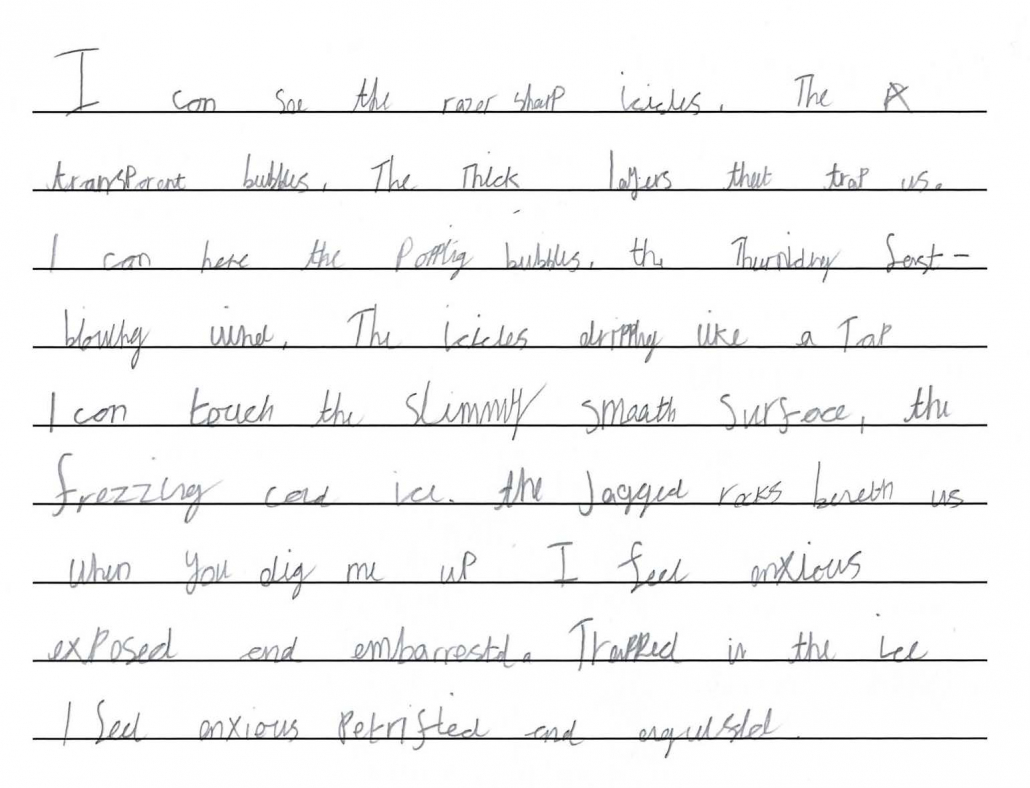 I can see the razer sharp icicles. The
transparent bubbles. The Thick layers that trap us.
I can here the bubbles. the fast-
blowing wind. The icicles dripping like a Tap
I can touch the slimmy smooth surface, the
frezzing cold ice. the Jagged rocks beneth us
when you dig me up I feel anxious
exposed and embarrestd. Trapped in the ice
I feel anxious Petrifted and